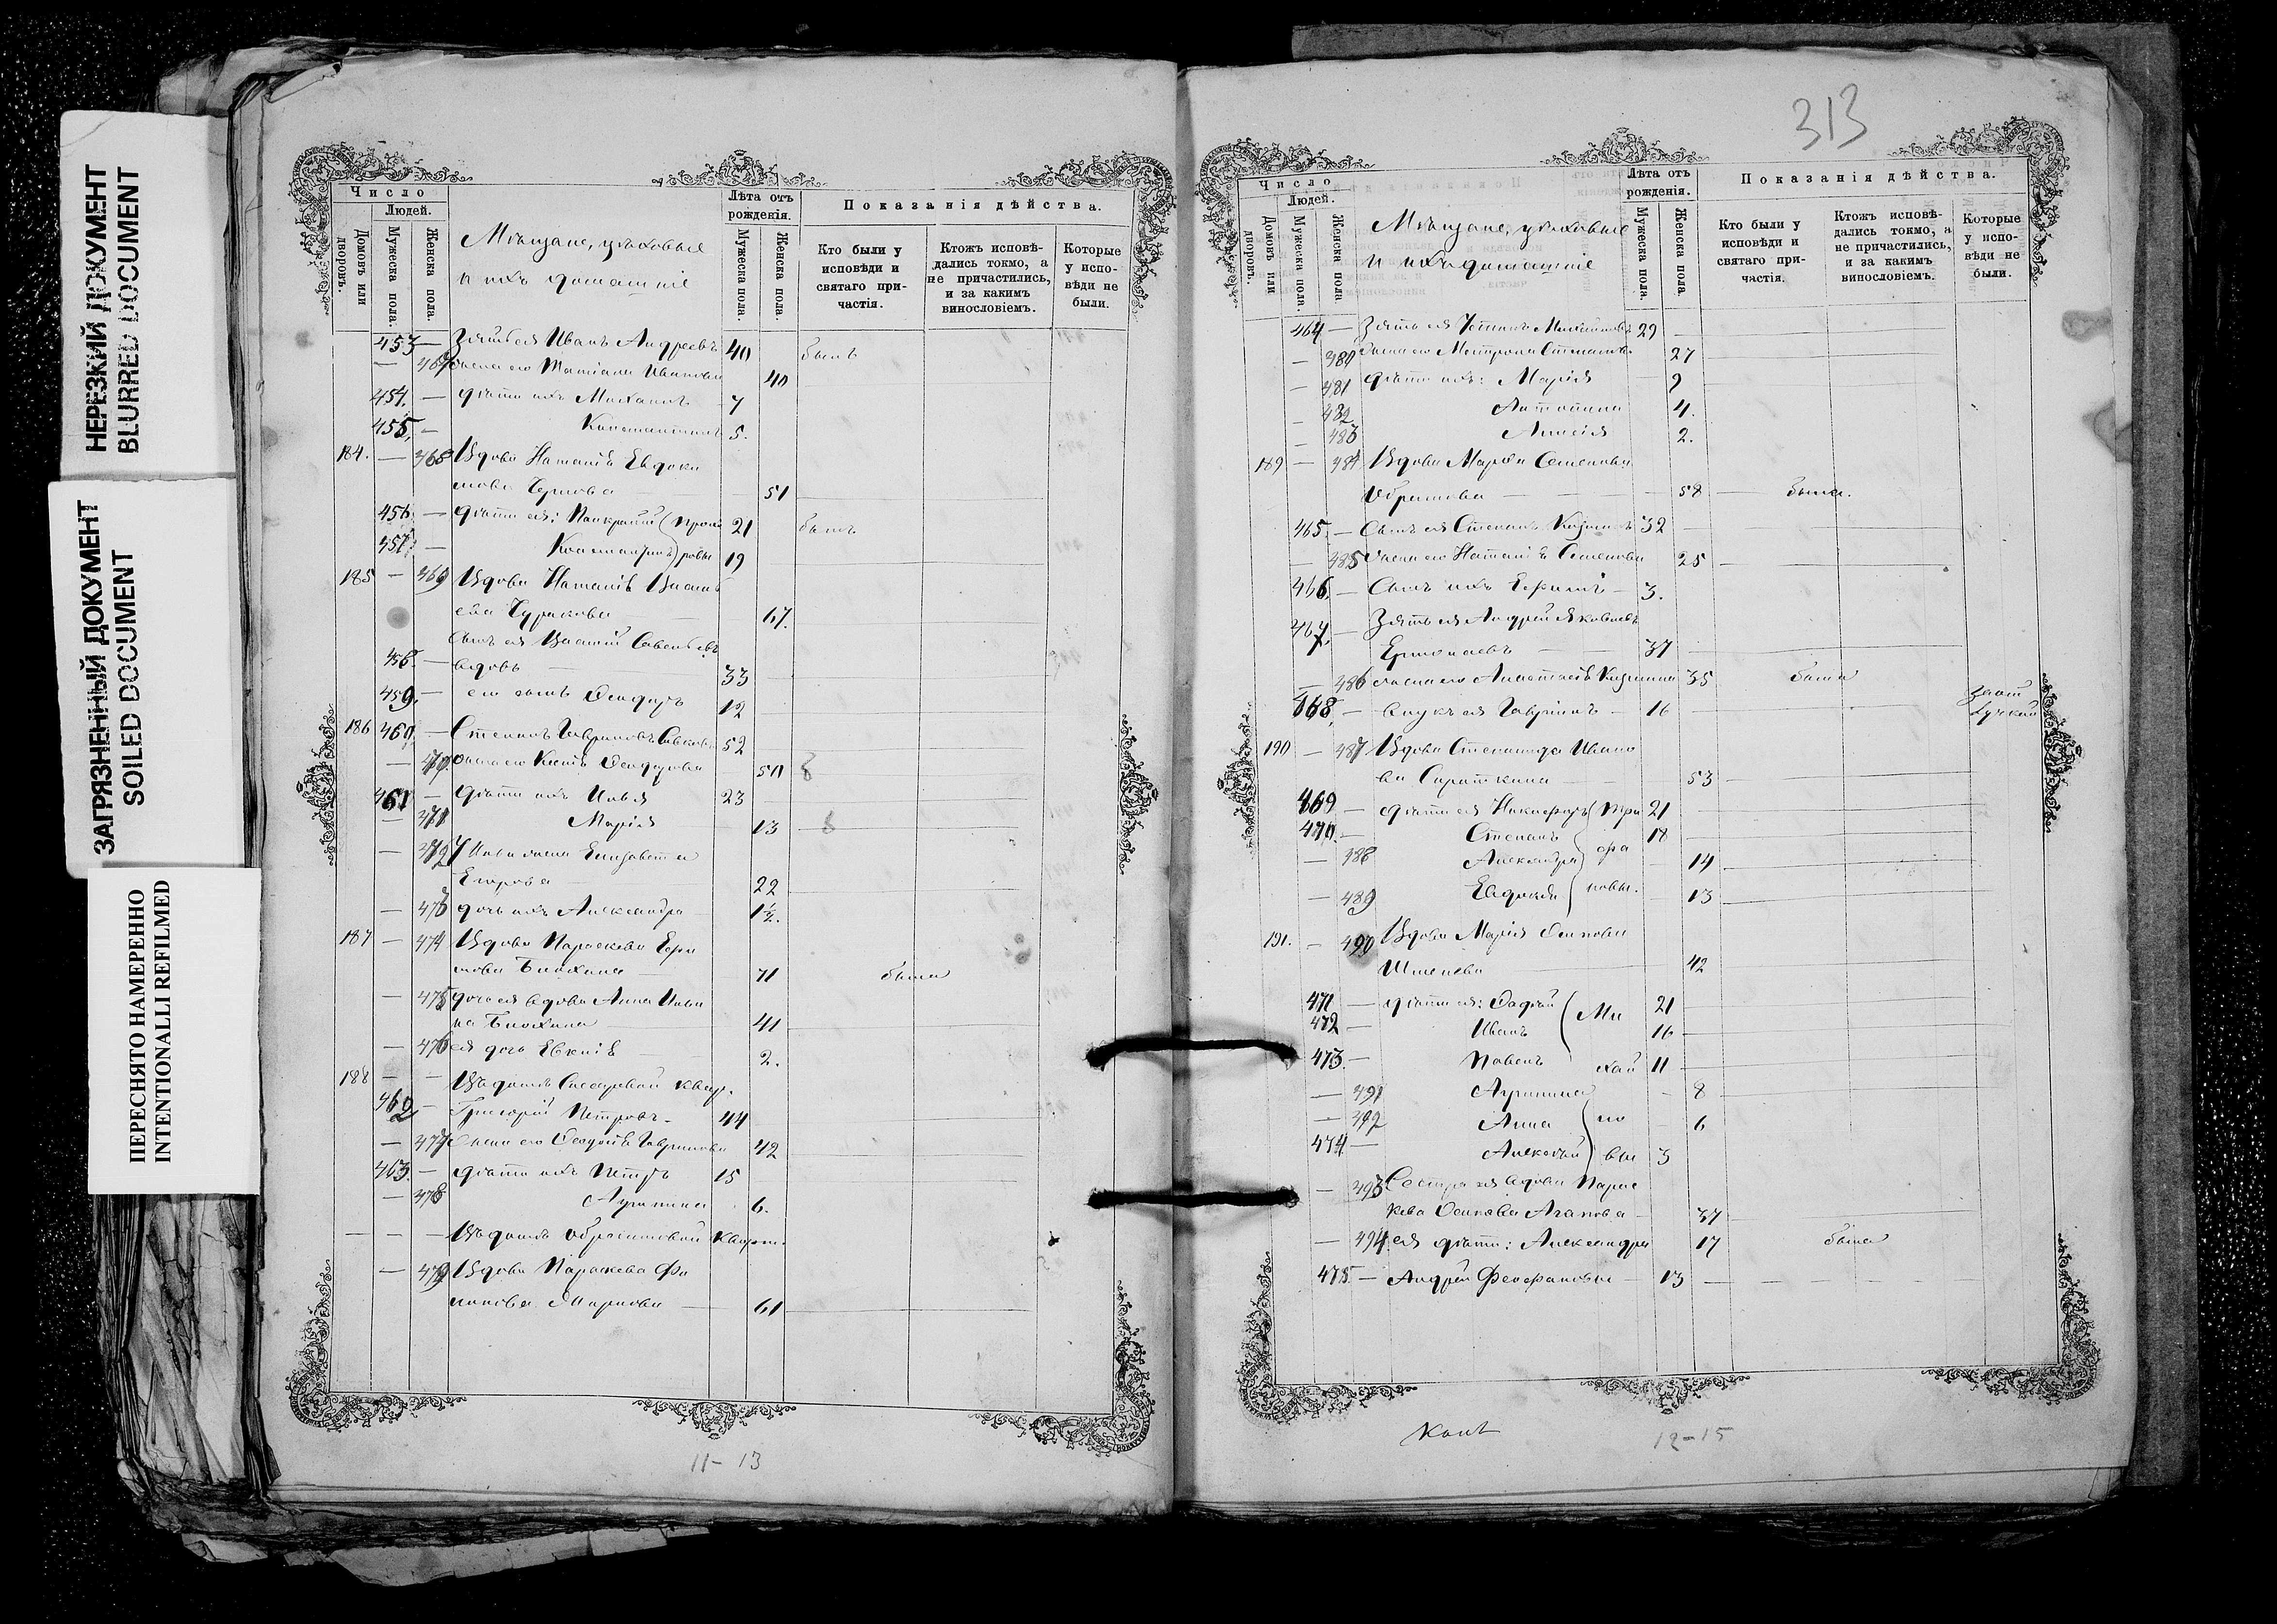 НЕРЕЗКИЙ ДОКУМЕНТ
BLURRED DOCUMENT
ЗАГРЯЗНЕННЫЙ ДОКУМЕНТ
SOILED DOCUMENT
ПЕРЕСНЯТО НАМЕРЕННО
INTENTIONALLI REFILMED
Число
Людей.
Домовъ или дворовъ.
Мужеска пола.
Женска пола.
Мѣщане, цѣховые
и ихъ домашніе
Лѣта отъ рожденія.
Мужеска пола.
Женска пола.
Показанія дѣйства.
Кто были у исповѣди и святаго причастія.
Ктожъ исповѣдались токмо, а не причастились, и за какимъ винословіемъ.
Которые у исповѣди не были.
453 — Зять ея Иванъ Андреевъ 40 былъ
— 467 жена его Татіана Иванова 40
454. — дѣти ихъ Михаилъ 7
455. — Константинъ 5.
184. — 468 Вдова Наталія Евдоки
мова 51
456. — дѣти ея: Панкратій 21 былъ
457. — Константинъ 19
185 — 469 Вдова Наталія Василь
ева Чуракова 67.
Сынъ ея Василій Савельевъ
458. — вдовъ 33
459. — его сынъ Ѳеодоръ 12
186 460. — Степанъ Гавриловъ 52
— 470. жена его Ксенія Ѳеодорова 50
461 — дѣти ихъ Илья 23
— 471 Марія 13
— 472 У Ильи жена Елизавета
Егорова 22
— 473 дочь ихъ Александра 1½.
187 — 474 Вдова Параскева Ефи
мова Блохина 71 была
— 475 дочь ея вдова Анна Ильи
на Блохина 41
— 476 ея дочь Евгенія 2.
188 — — Въ домѣ Слесаревой кварт.
462 — Григорій Петровъ 44
— 477 Жена его Ѳеодосія Гаврилова 42
463. — дѣти ихъ Петръ 15
— 478 Акулина 6.
— — — Въ домѣ Образцовой кварт.
— 479 Вдова Параскева Фи
липова Маркова 61
11-13
313
Число
Людей.
Домовъ или дворовъ.
Мужеска пола.
Женска пола
Мѣщане, цѣховые
и ихъ домашніе
Лѣта отъ рожденія.
Мужеска пола.
Женска пола.
Показанія дѣйства.
Кто были у исповѣди и святаго причастія.
Ктожъ исповѣдались токмо, а не причастились, и за какимъ винословіемъ.
Которые у исповѣди не были.
464 — Зять ея 29
— 480 жена его Матрона Степанова 27
— 481 дѣти ихъ: Марія 9
— 482 Антонина 4.
— 483 Анисія 2.
189 — 484 Вдова Марѳа Семенова
58 — была.
465. — Сынъ ея Степанъ Кузминъ 32
— 485 жена его Наталія Семенова 25
466. — Сынъ ихъ Ефимъ 3.
467. — Зять ея Андрей Яковлевъ
Ермолаевъ 37
— 486 жена его Анастасія Кузмина 35 была
468. — внукъ ея Гавріилъ — 16
190 — 487 Вдова Степанида Ивано
ва Сироткина 53
469 — дѣти ея Никифоръ ( Три 21
470. — Степанъ 18
— 488 Александра фи 14
— 489 Евдокія новы. 13
191. — 490 Вдова Марія Осипова
Шмелева 42
471 — дѣти ея: ( Ми 21
472 — Иванъ 16
473. — Павелъ хай 11
— 491 Акулина 8
— 492 Анна ло 6
474 — Алексѣй вы 3
— 493 Сестра ея вдова Парас
кева Осипова Агапова 37
— 494 ея дѣти: Александра 17 была
475. — Андрей Феофановы — 13
12-15